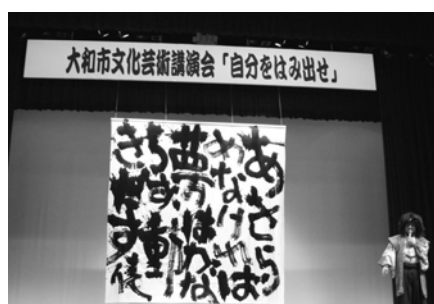 大和市文化芸術講演会「自分をはみ出せ」
あきら
めなければ
夢はかな
らず